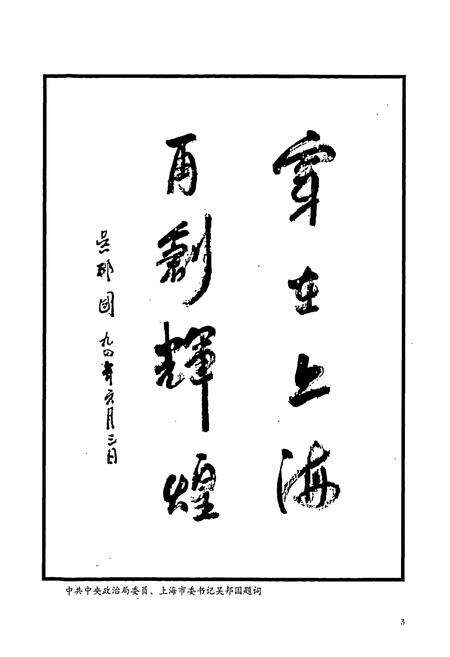 穿在上海
再創輝煌
吴邦國 九四年六月三日
中共中央政治局委员、上海市委书记吴邦国题词
3